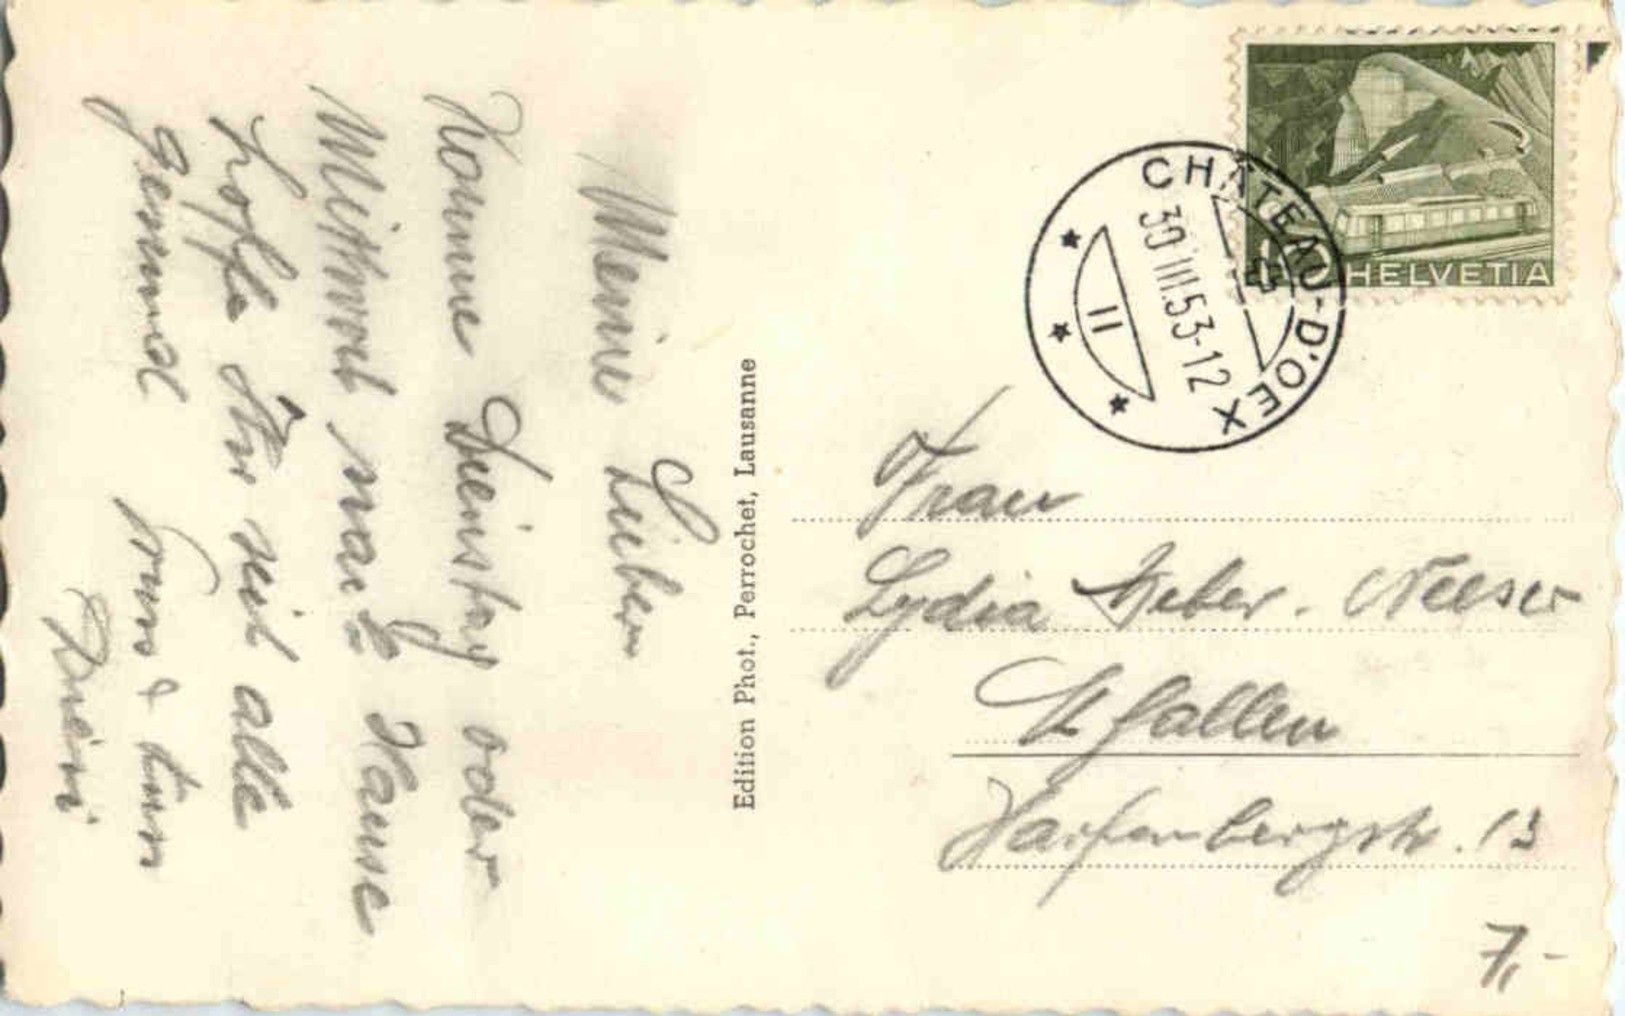 Meine Lieben
Komme Dienstag oder
Mittwoch nach Hause
hoffe Ihr seit alle
gesund
Edition Phot., Perrochet, Lausanne
CHÂTEAU-D'OEX
30 III.53-12
II
10 HELVETIA
Frau
Lydia Weber - Neeser
St Gallen
Harfenbergstr. 13
7,-